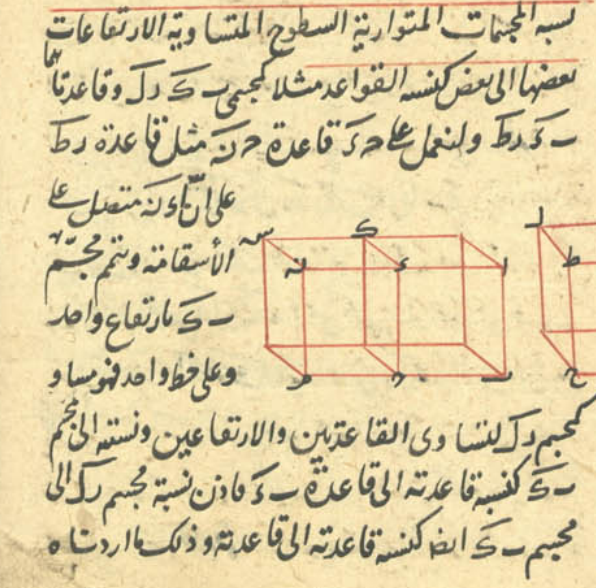 نسبة المجسمات المتوازية السطوح المتساوية الارتفاعات
بعضها الى بعض كنسبة القواعد مثلا كمجسمى ب ك ر ل وقاعدتاهما
ب ء ر ط ولنعمل على ح ء قاعدة ح ن مثل قاعدة ر ط
على ان ا ء ن متصل على
الأستقامة ونتم مجسم
ب ك بارتفاع واحد
وعلى خط واحد فهو مساو
لمجسم ر ل لتساوى القاعدتين والارتفاعين ونسبته الى مجسم
ب ك كنسبة قاعدته الى قاعدة ب ء فاذن نسبة مجسم ر ل الى
مجسم ب ك ايضا كنسبة قاعدته الى قاعدته وذلك ما اردناه
س ك ل
ن ء ا ط
م ح ب ح